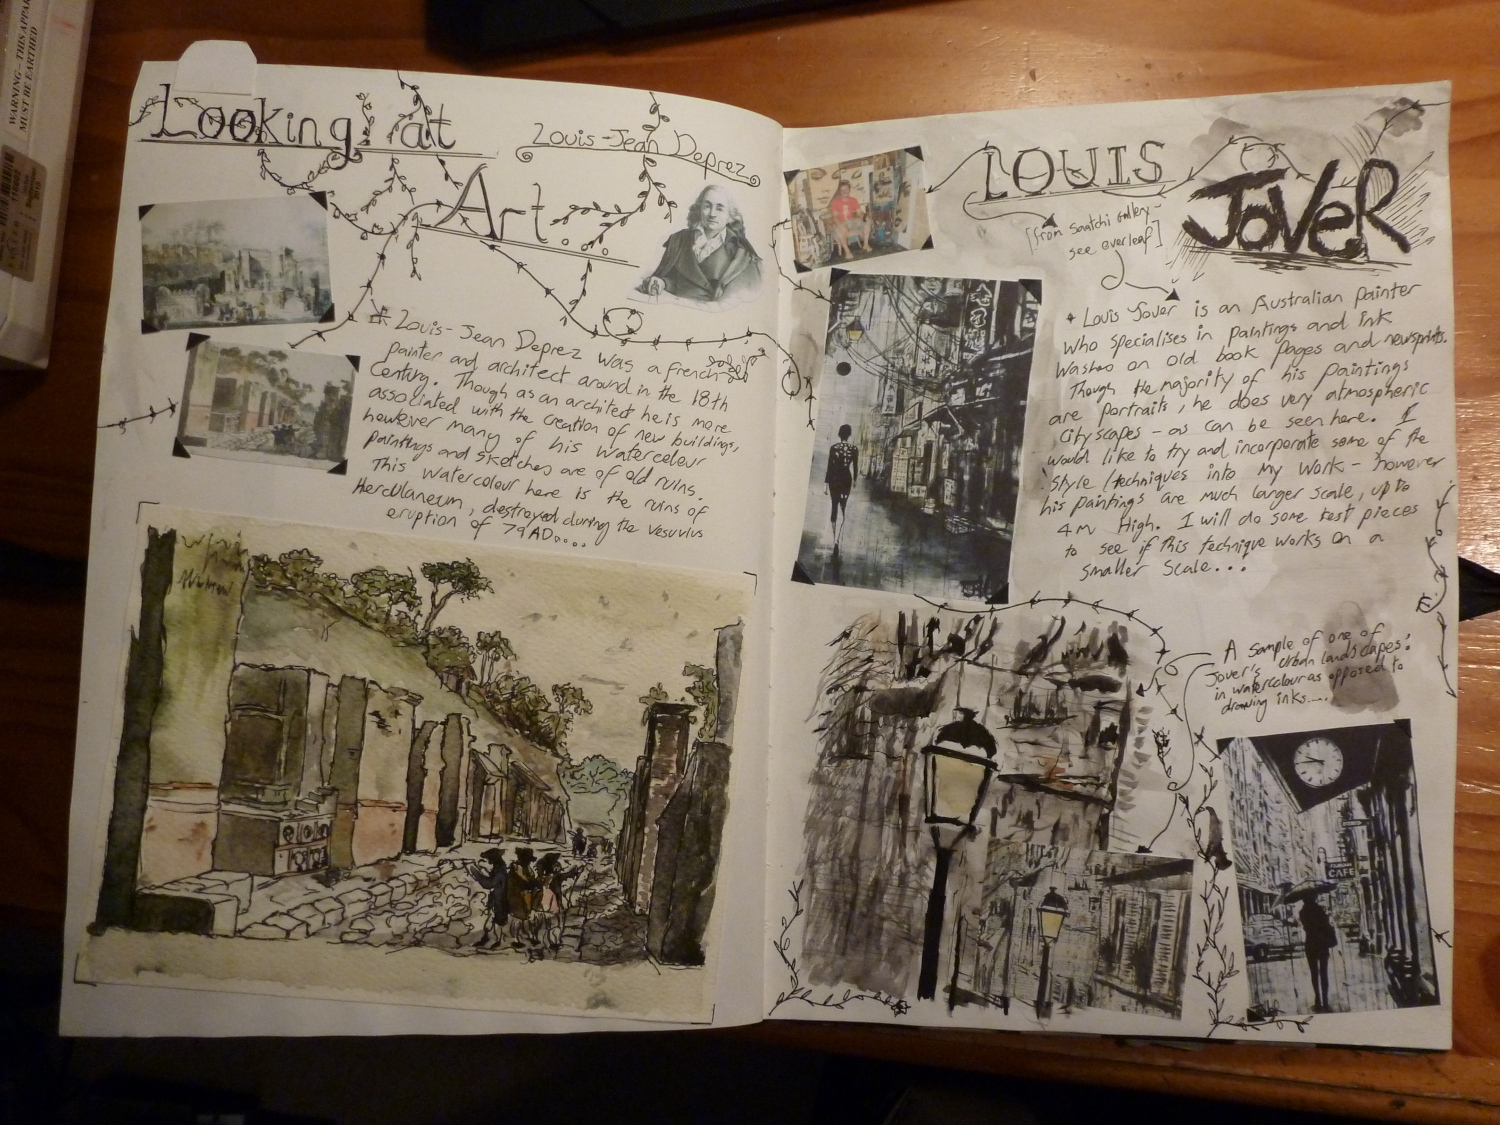 WARNING – THIS APPAR
MUST BE EARTHED
Looking at
Art...
Louis-Jean Deprez
* Louis-Jean Deprez was a french
painter and architect around in the 18th
Century. Though as an architect he is more
associated with the creation of new buildings,
however many of his watercolour
paintings and sketches are of old ruins.
This watercolour here is the ruins of
Herculaneum, destroyed during the vesuvius
eruption of 79AD....
LOUIS
JOVER
[from Saatchi Gallery -
see overleaf]
* Louis Jover is an Australian painter
who specialises in paintings and ink
washes on old book pages and newsprints.
Though the majority of his paintings
are portraits, he does very atmospheric
cityscapes - as can be seen here. I
would like to try and incorporate some of the
style/techniques into my work - however
his paintings are much larger scale, up to
4m High. I will do some test pieces
to see if this technique works on a
smaller scale...
A sample of one of
Jover's urban landscapes:
in watercolour as opposed to
drawing inks....
CAFE